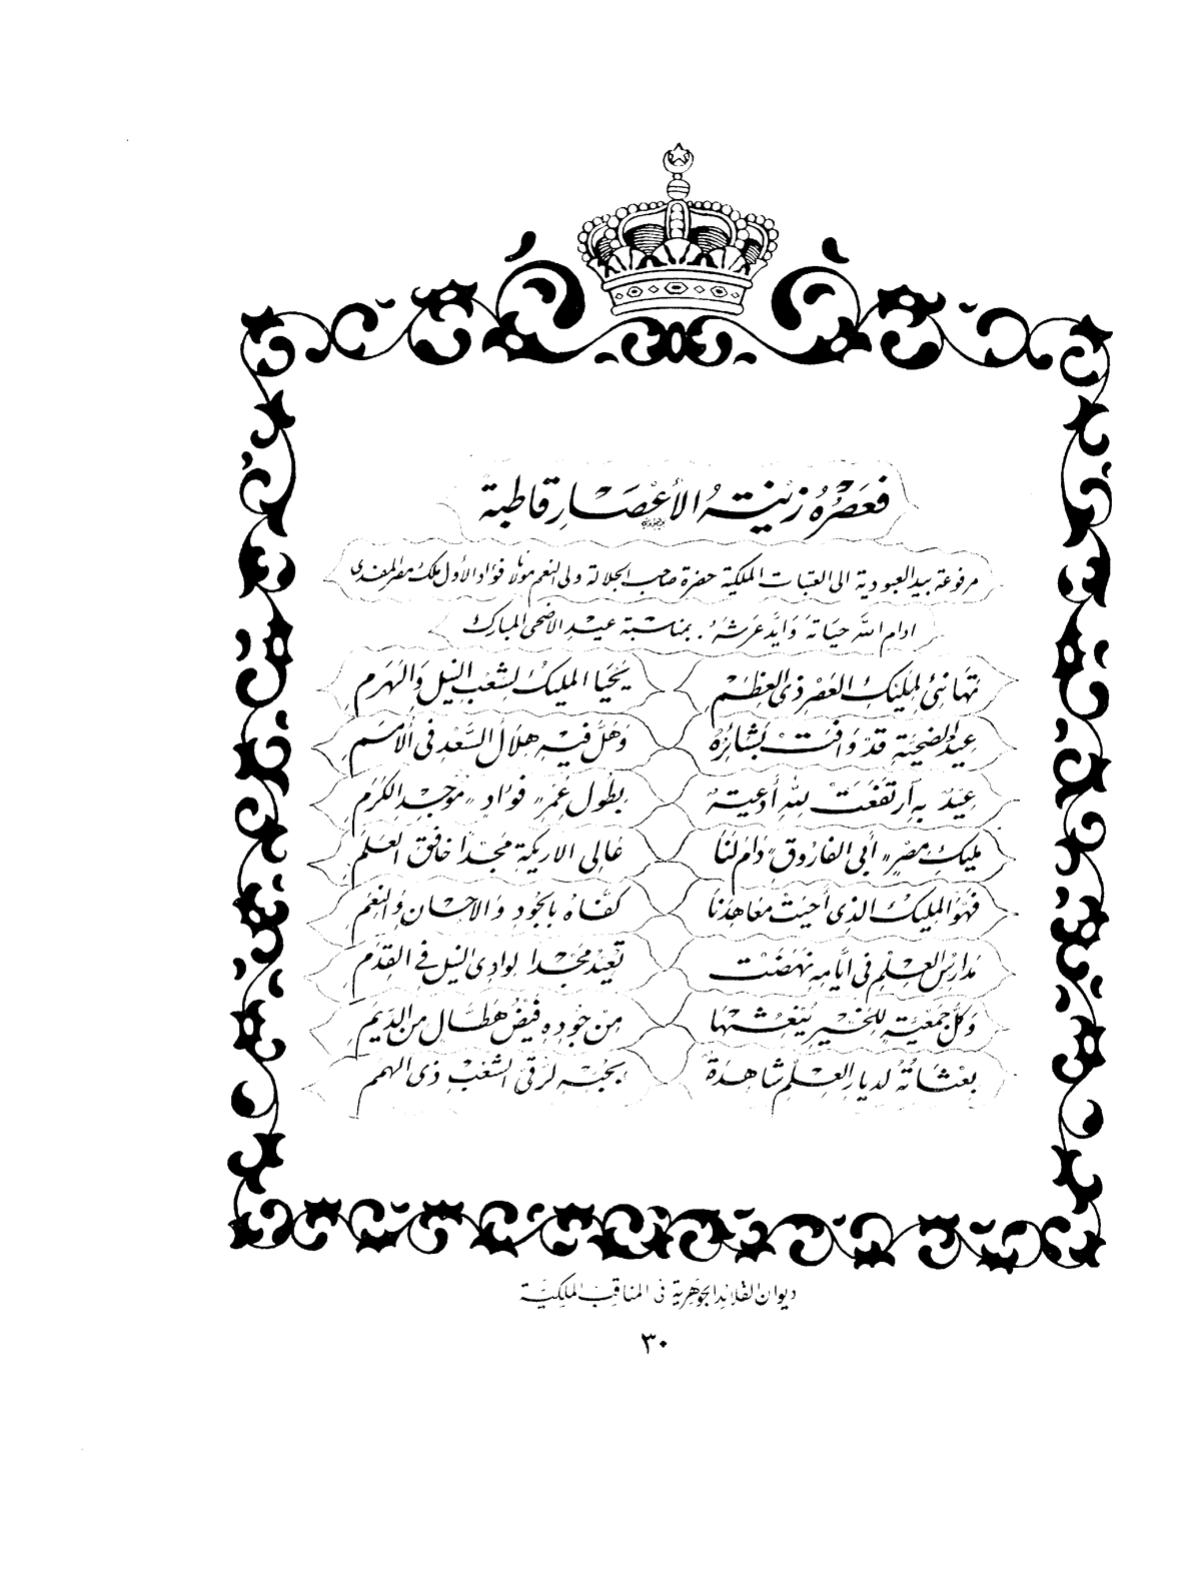 فَعَصْرُهُ زِينَةُ الأَعْصَارِ قَاطِبَةً
مرفوعة بيد العبودية الى العتبات الملكية حضرة صاحب الجلالة ولى النعم مولانا فؤاد الأول ملك مصر المفدى
ادام الله حياته وأيد عرشه . بمناسبة عيد الأضحى المبارك
تهانئ لمليك العصر ذى العظم يحيا المليك لشعب النيل والهرم
عيد الضحية قد وافت بشائره وهل فيه هلال السعد فى الأمم
عيد به ارتفعت لله أدعية بطول عمر "فؤاد" موجد الكرم
مليك مصر "أبى الفاروق" دام لنا عالى الاريكة مجدا خافق العلم
فهو المليك الذى أحيت معاهدنا كفاه بالجود والاحسان والنعم
مدارس العلم فى ايامه نهضت تعيد مجدا لوادى النيل فى القدم
وكل جمعية للخير ينعشها من جوده فيض هطال من الديم
بعثاته لديار العلم شاهدة بحبه لرقى الشعب ذى الهمم
ديوان القلائد الجوهرية فى المناقب الملكية
٣٠